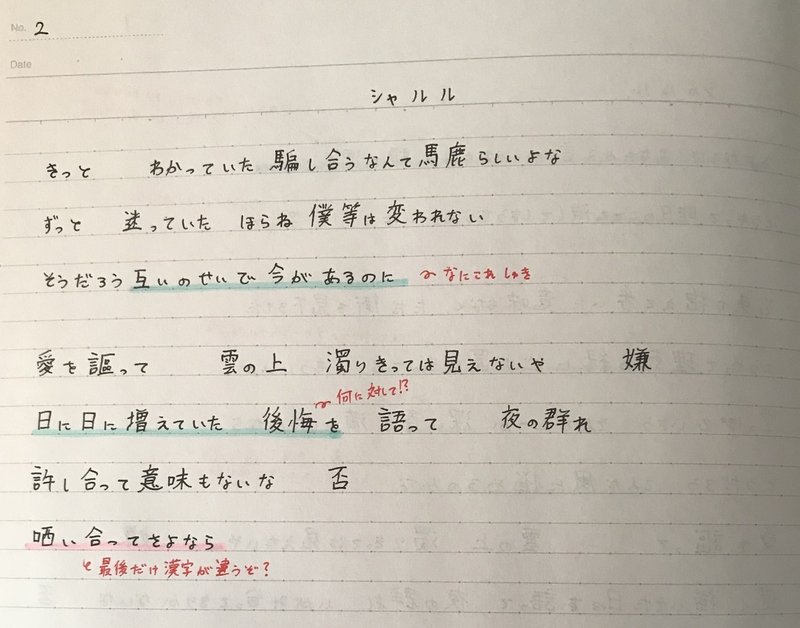 No. 2
Date
シャルル
きっと わかっていた 騙し合うなんて馬鹿らしいよな
ずっと 迷っていた ほらね 僕等は変われない
そうだろう 互いのせいで 今があるのに 〜なにこれ しゅき
愛を謳って 雲の上 濁りきっては見えないや 嫌
〜何に対して!?
日に日に増えていた 後悔を 語って 夜の群れ
許し合って意味もないな 否
哂い合ってさよなら
最後だけ漢字が違うぞ?